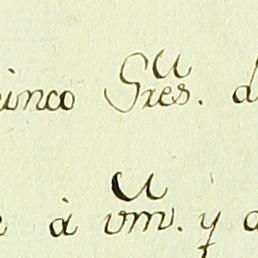 cinco Sres. d
e à vm. y a